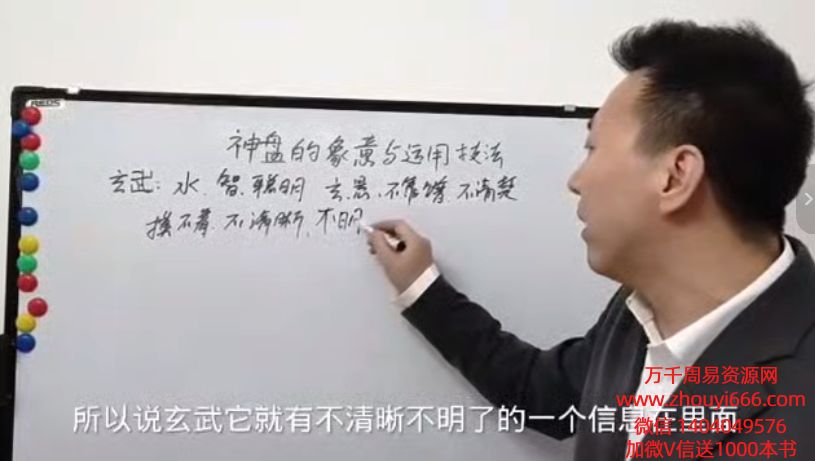 神盘的象意与运用技法
玄武：水、智、聪明 玄、悬、不靠谱、不清楚
摸不着、不清晰、不明
所以说玄武它就有不清晰不明了的一个信息在里面
万千周易资源网
www.zhouyi666.com
微信1404049576
加微V信送1000本书